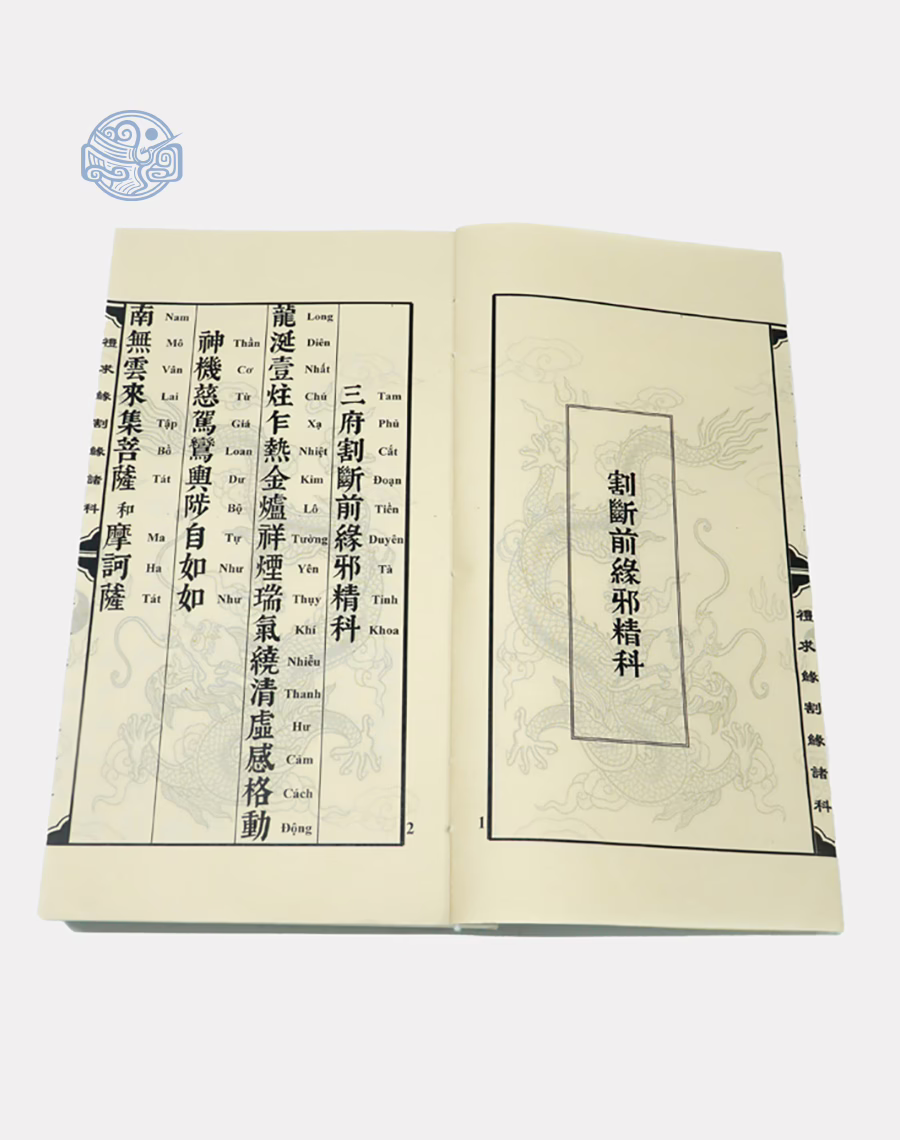 割斷前緣邪精科
1
禮求緣割緣諸科
三府割斷前緣邪精科
Tam Phủ Cắt Đoạn Tiền Duyên Tà Tinh Khoa
龍涎壹炷乍熱金爐祥煙瑞氣繞清虛感格動
Long Diên Nhất Chú Xạ Nhiệt Kim Lô Tường Yên Thụy Khí Nhiễu Thanh Hư Cảm Cách Động
神機慈駕鸞輿陟自如如
Thần Cơ Từ Giá Loan Dư Bộ Tự Như Như
南無雲來集菩薩和摩訶薩
Nam Mô Vân Lai Tập Bồ Tát Ma Ha Tát
2
禮求緣割緣諸科